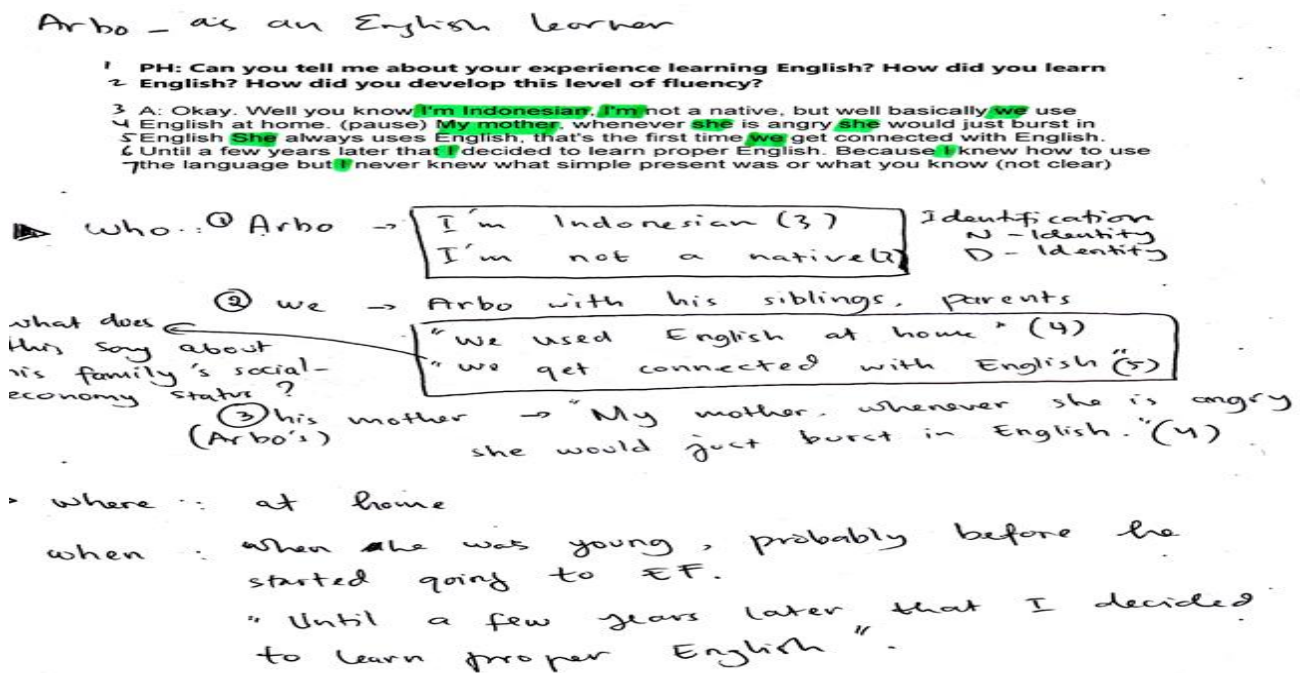 Arbo - as an English learner
1 PH: Can you tell me about your experience learning English? How did you learn
2 English? How did you develop this level of fluency?
3 A: Okay. Well you know I'm Indonesian, I'm not a native, but well basically we use
4 English at home. (pause) My mother, whenever she is angry she would just burst in
5 English She always uses English, that's the first time we get connected with English.
6 Until a few years later that I decided to learn proper English. Because I knew how to use
7 the language but I never knew what simple present was or what you know (not clear)
who : ① Arbo → I'm Indonesian (3)
I'm not a native (3)
Identification
N - Identity
D - Identity
② we → Arbo with his siblings, parents
"we used English at home" (4)
"we get connected with English" (5)
what does
this say about
his family's social-
economy status?
③ his mother → "My mother, whenever she is angry
(Arbo's) she would just burst in English." (4)
where : at home
when : when he was young, probably before he
started going to EF.
"Until a few years later that I decided
to learn proper English".